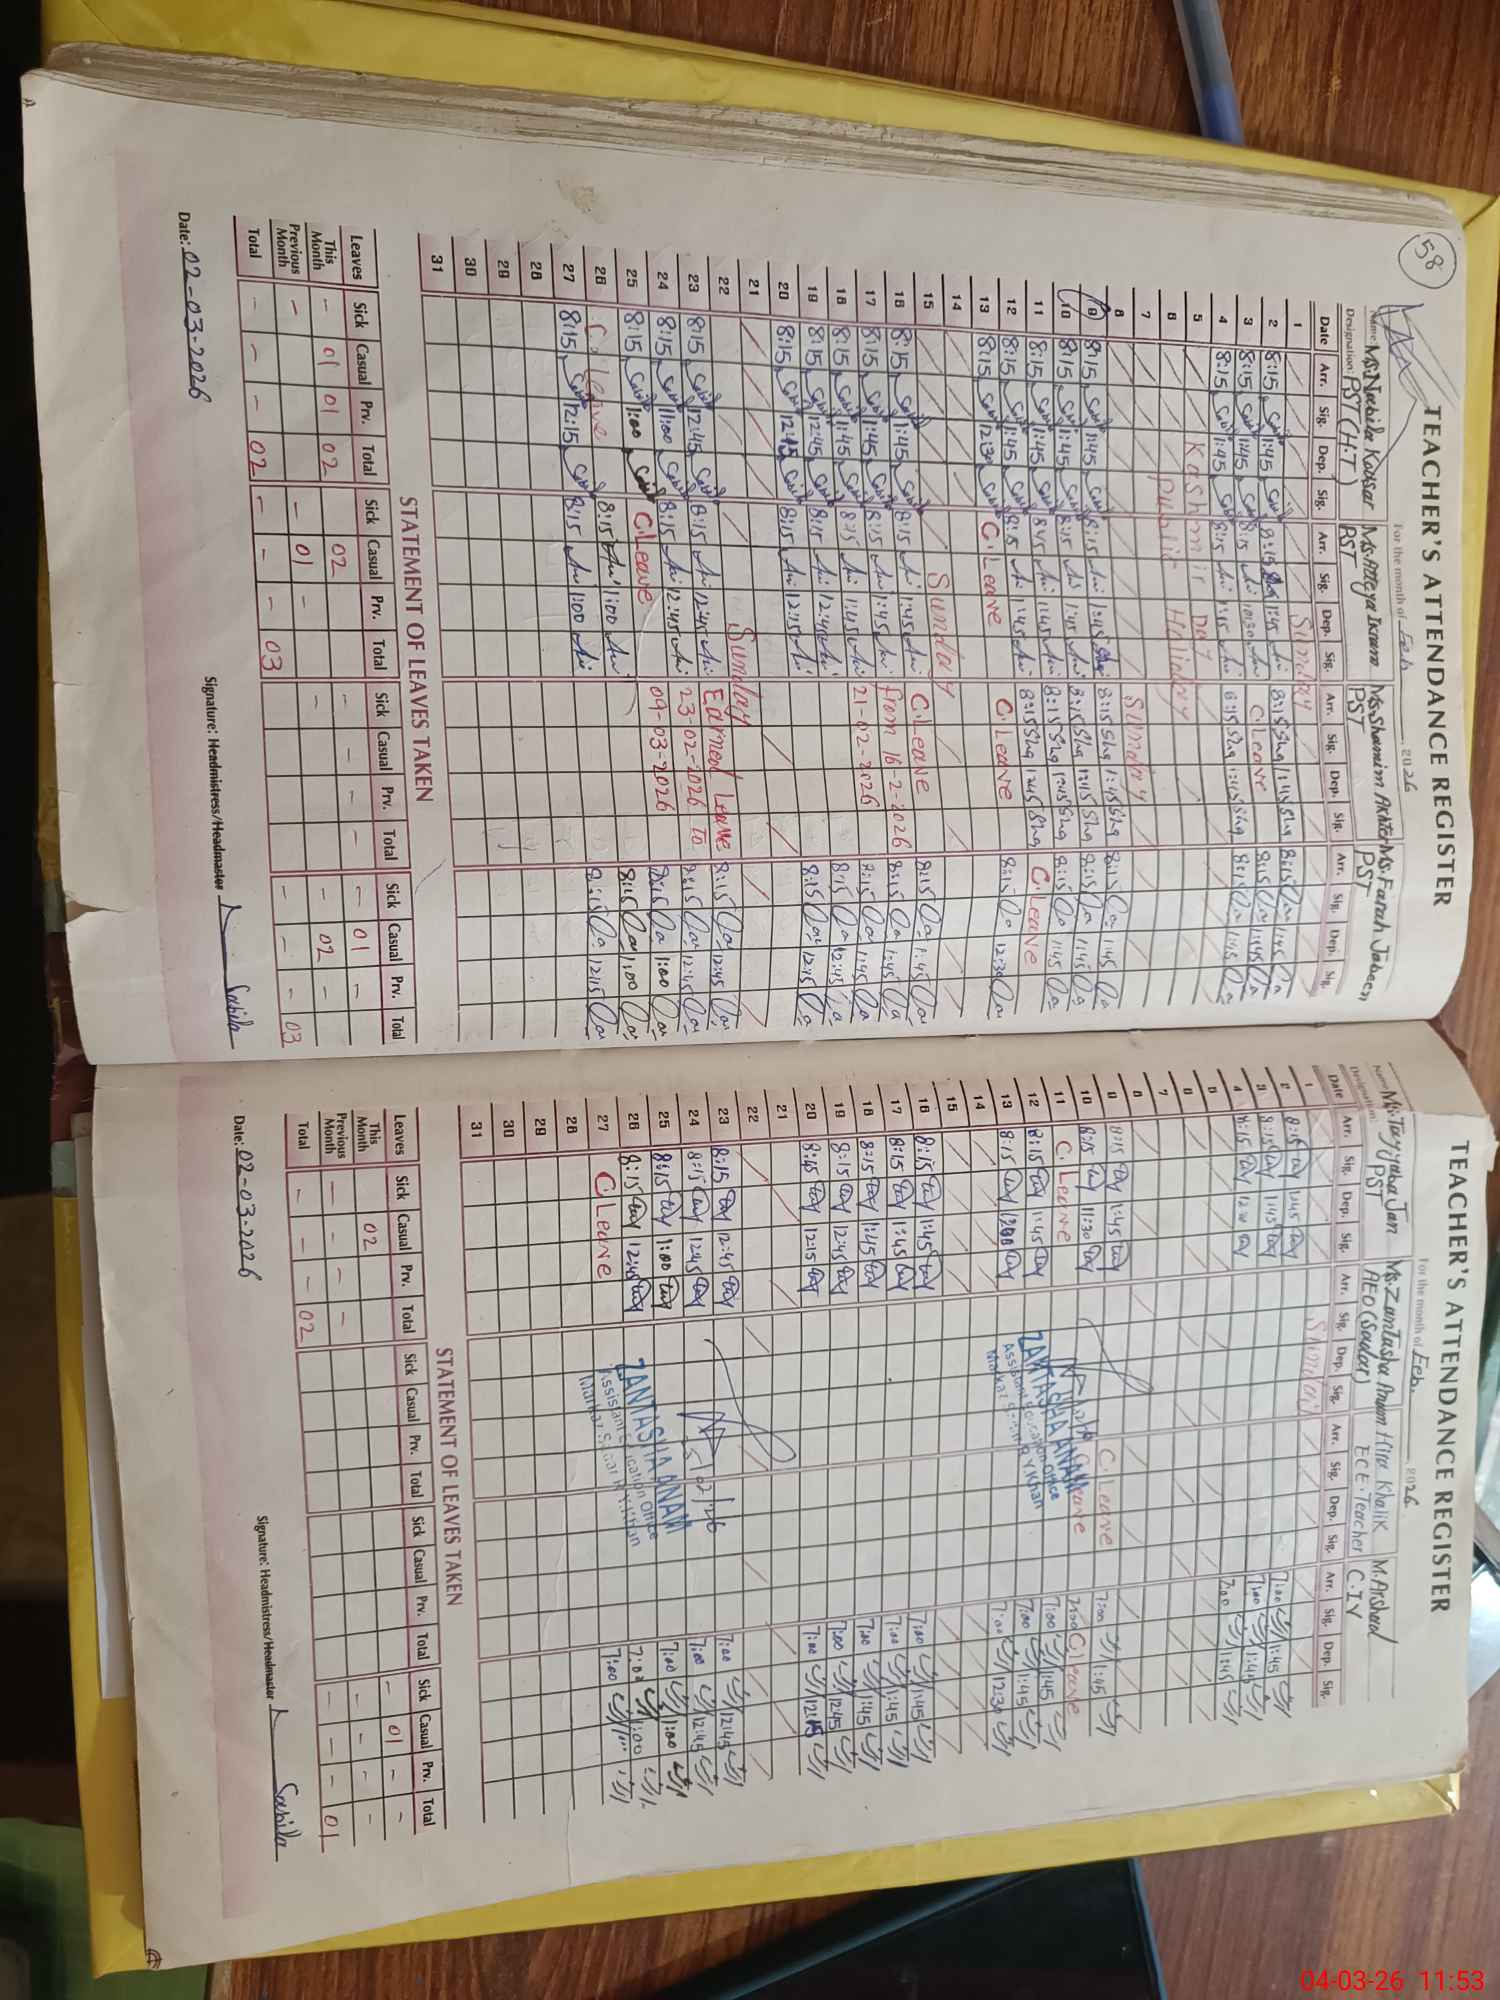 58
TEACHER'S ATTENDANCE REGISTER
For the month of Feb 2026
Name: Ms. Nabila Kausar Ms. Atteya Ikram Ms. Shamim Akhter Ms. Farah Jabeen
Designation: PST (H.T) PST PST PST
Date Arr. Sig. Dep. Sig. Arr. Sig. Dep. Sig. Arr. Sig. Dep. Sig. Arr. Sig. Dep. Sig.
1 Sunday
2 8:15 1:45 8:15 1:45 8:15 Shq 1:45 Shq 8:15 1:45
3 8:15 1:45 8:15 10:30 C.Leave 8:15 1:45
4 8:15 1:45 8:15 8:15 Shq 1:45 Shq 8:15 1:45
5 Kashmir Day
6 Public Holiday
7
8 Sunday
9 8:15 1:45 8:15 1:45 8:15 Shq 1:45 Shq 8:15 1:45
10 8:15 1:45 8:15 1:45 8:15 Shq 1:45 Shq 8:15 1:45
11 8:15 1:45 8:45 1:45 8:15 Shq 1:45 Shq 8:15 1:45
12 8:15 1:45 8:15 1:45 8:15 Shq 1:45 Shq C.Leave
13 8:15 12:30 C.Leave C.Leave 8:15 12:30
14
15 Sunday
16 8:15 1:45 8:15 1:45 C.Leave 8:15 1:45
17 8:15 1:45 8:15 1:45 from 16-2-2026 8:15 1:45
18 8:15 1:45 8:15 1:45 21-02-2026 1:45
19 8:15 12:45 8:15 12:45 8:15 12:45
20 8:15 12:15 8:15 12:15 8:15 12:15
21
22 Sunday
23 8:15 12:45 8:15 12:45 Earned Leave 8:15 12:45
24 8:15 1:00 8:15 12:45 23-02-2026 To 8:15 12:45
25 8:15 1:00 C.Leave 09-03-2026 8:15 1:00
26 C.Leave 8:15 1:00 8:15 1:00
27 8:15 12:15 8:15 1:00 8:15 12:15
28
29
30
31
STATEMENT OF LEAVES TAKEN
Leaves Sick Casual Prv. Total Sick Casual Prv. Total Sick Casual Prv. Total Sick Casual Prv. Total
This Month - 01 01 02 02 - - - - - 01 -
Previous Month - - 01 - - 02 -
Total - - - 02 - - - 03 - - - 03
Date: 02-03-2026 Signature: Headmistress/Headmaster Sabila
TEACHER'S ATTENDANCE REGISTER
For the month of Feb. 2026
Name: Ms. Tayyaba Jan Ms. Zantasha Anam Hira Khalik M. Arshad
Designation: PST AEO (Sadar) ECE. Teacher C.IV
Date Arr. Sig. Dep. Sig. Arr. Sig. Dep. Sig. Arr. Sig. Dep. Sig. Arr. Sig. Dep. Sig.
1 Sunday
2 8:15 Tay 1:45 Tay 7:00 1:45
3 8:15 Tay 1:45 Tay 7:00 1:45
4 8:15 Tay Tay 7:00 1:45
5
6
7
8
9 8:15 Tay 1:45 Tay C.Leave 7:00 1:45
10 8:15 Tay 11:30 Tay C.Leave 7:00 C.Leave
11 C.Leave 7:00 1:45
12 8:15 Tay 1:45 Tay 7:00 1:45
13 8:15 Tay Tay 7:00 12:30
ZANTASHA ANAM
Assistant Education Office
Markaz Sadar R.Y.Khan
14
15
16 8:15 Tay 1:45 Tay 7:00 1:45
17 8:15 Tay 1:45 Tay 7:00 1:45
18 8:15 Tay 1:45 Tay 7:00 1:45
19 8:15 Tay 12:45 Tay 7:00 12:45
20 8:15 Tay 12:15 Tay 7:00 12:15
21
22
23 8:15 Tay 12:45 Tay 7:00 12:45
24 8:15 Tay 12:45 Tay 7:00 12:45
25 8:15 Tay 1:00 Tay 7:00 1:00
26 8:15 Tay 12:45 Tay 7:00 1:00
27 C.Leave 7:00
ZANTASHA ANAM
Assistant Education Office
Markaz Sadar R.Y.Khan
28
29
30
31
STATEMENT OF LEAVES TAKEN
Leaves Sick Casual Prv. Total Sick Casual Prv. Total Sick Casual Prv. Total Sick Casual Prv. Total
This Month 02 - 01 - -
Previous Month - - - - - - - -
Total - - - 02 - - - 01
Date: 02-03-2026 Signature: Headmistress/Headmaster Sabila
04-03-26 11:53